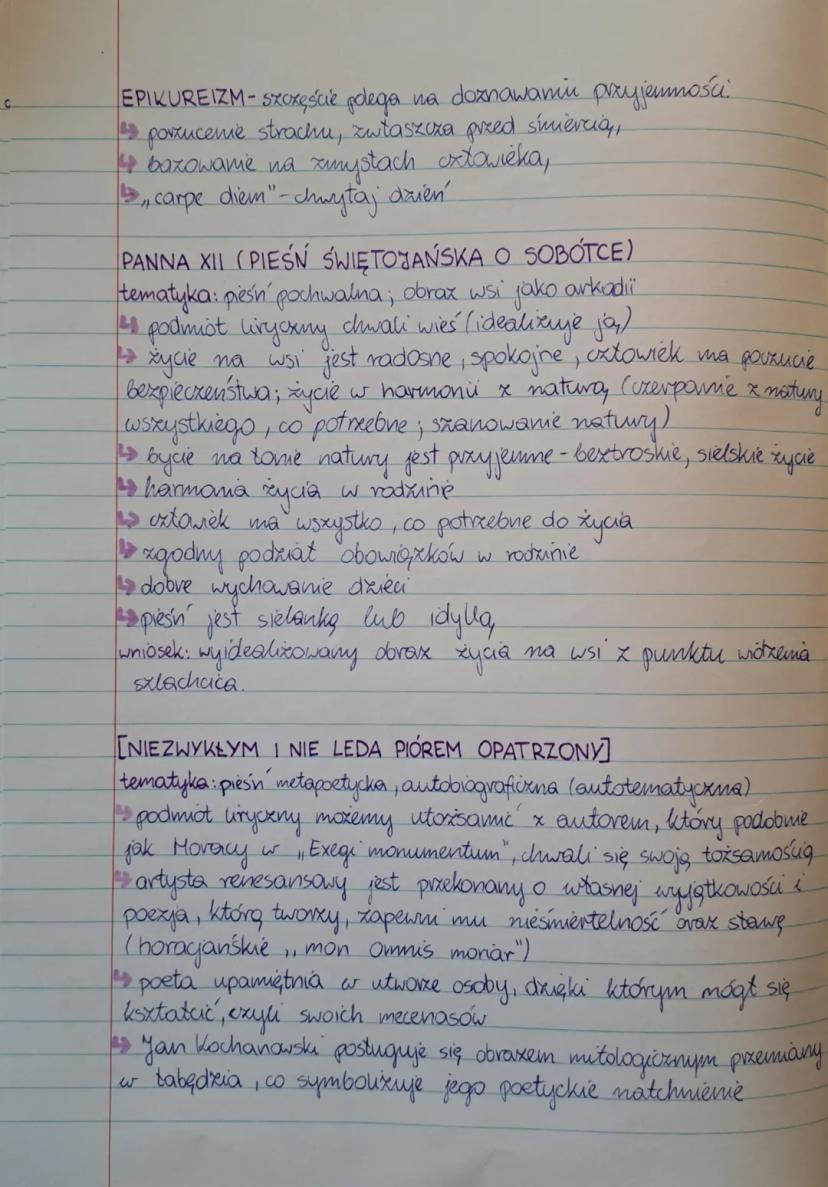 c
EPIKUREIZM - szczęście polega na doznawaniu przyjemności:
↳ porzucenie strachu, zwłaszcza przed śmiercią,
↳ bazowanie na zmysłach człowieka,
↳ „carpe diem" - chwytaj dzień
PANNA XII (PIEŚŃ ŚWIĘTOJAŃSKA O SOBÓTCE)
tematyka: pieśń pochwalna; obraz wsi jako arkadii
↳ podmiot liryczny chwali wieś (idealizuje ją)
↳ życie na wsi jest radosne, spokojne, człowiek ma poczucie
bezpieczeństwa; życie w harmonii z naturą (czerpanie z natury
wszystkiego, co potrzebne; szanowanie natury)
↳ bycie na łonie natury jest przyjemne - beztroskie, sielskie życie
↳ harmonia życia w rodzinie
↳ człowiek ma wszystko, co potrzebne do życia
↳ zgodny podział obowiązków w rodzinie
↳ dobre wychowanie dzieci
↳ pieśń jest sielanką lub idyllą
wniosek: wyidealizowany obraz życia na wsi z punktu widzenia
szlachcica.
[NIEZWYKŁYM I NIE LEDA PIÓREM OPATRZONY]
tematyka: pieśń metapoetycka, autobiograficzna (autotematyczna)
↳ podmiot liryczny możemy utożsamić z autorem, który podobnie
jak Horacy w „Exegi monumentum", chwali się swoją tożsamością
↳ artysta renesansowy jest przekonany o własnej wyjątkowości i
poezja, którą tworzy, zapewni mu nieśmiertelność oraz sławę
(horacjańskie „mon omnis moriar")
↳ poeta upamiętnia w utworze osoby, dzięki którym mógł się
kształcić, czyli swoich mecenasów
↳ Jan Kochanowski posługuje się obrazem mitologicznym przemiany
w łabędzia, co symbolizuje jego poetyckie natchnienie